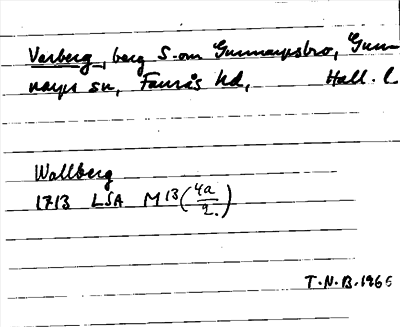 Varberg, berg S. om Gunnarpsbro, Gun-
narps sn, Faurås hd, Hall. l
Wallberg
1713 LSA M13 (4a/2.)
T.N.B. 1966